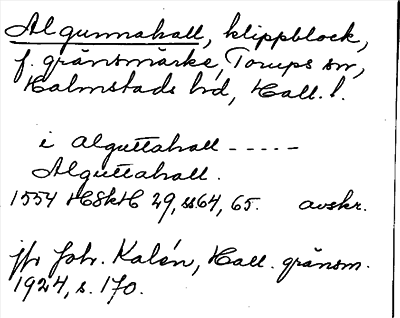 Algunnahall, klippblock,
f. gränsmärke, Torups sn,
Halmstads hd, Hall. l.
i alguttahall -----
Alguttahall.
1554 HSkH 29, ss 64, 65. avskr.
jfr Joh. Kalén, Hall. gränsm.
1924, s. 170.